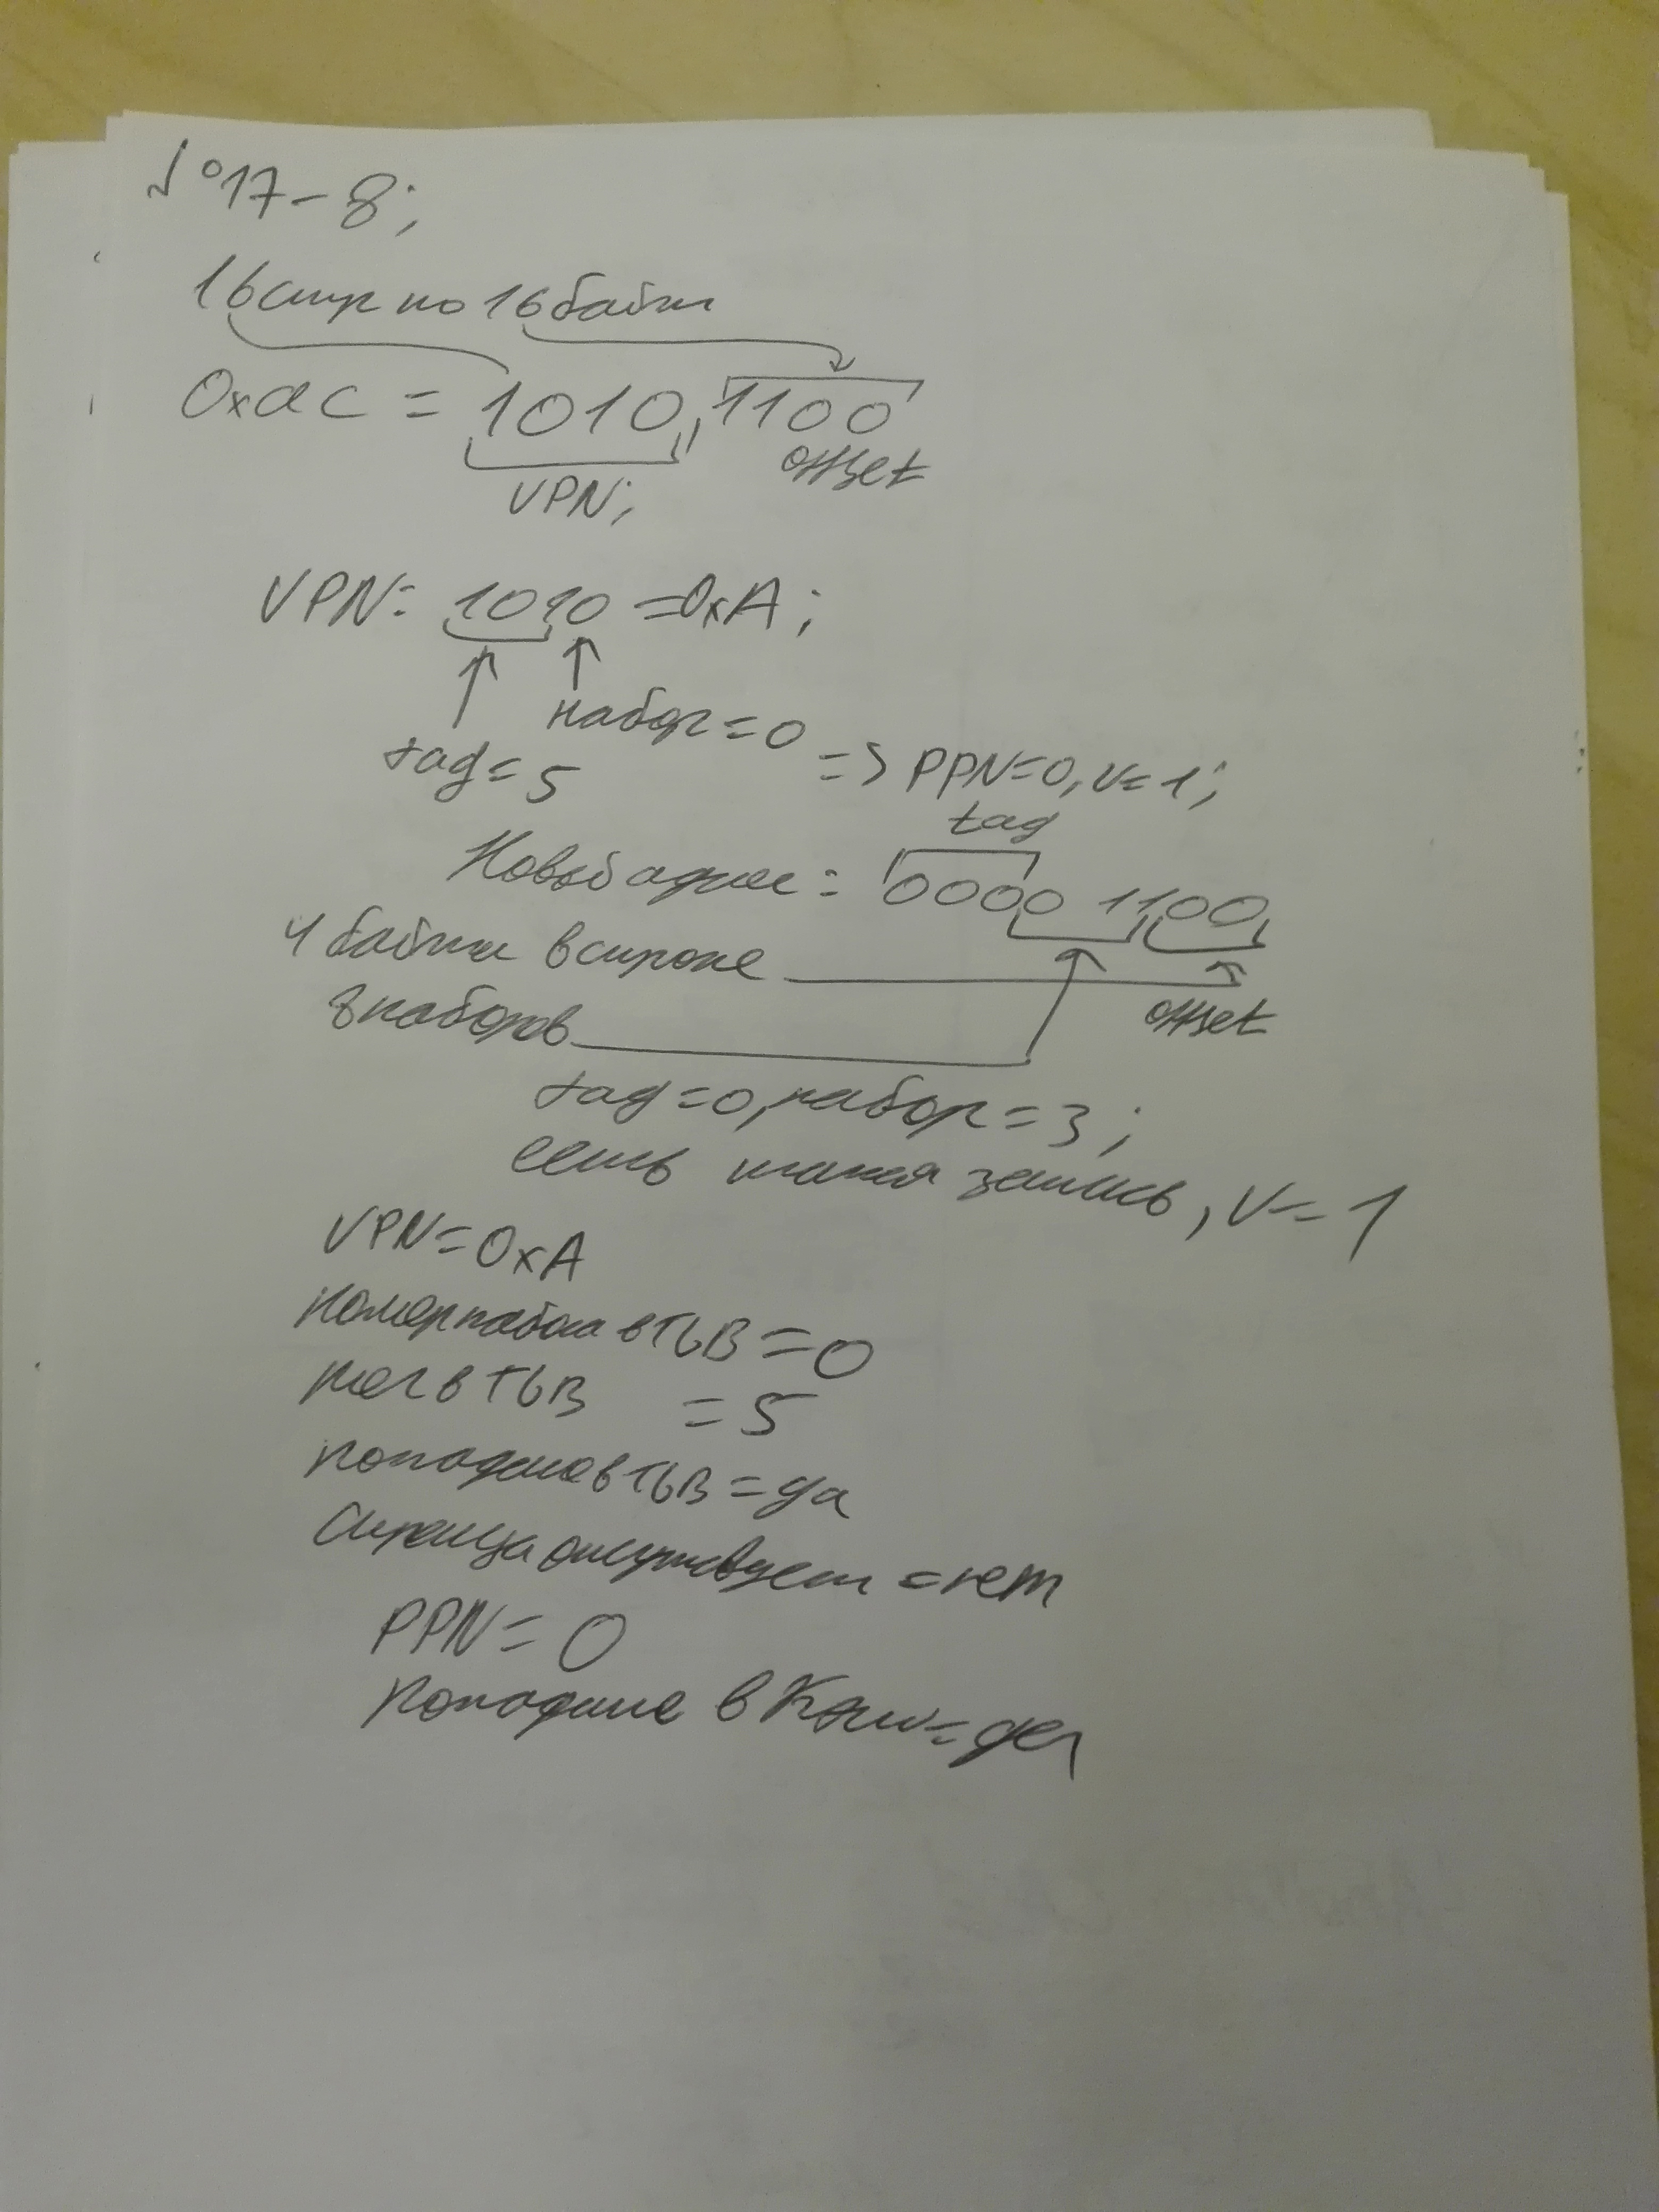 №17-8;
16 стр по 16 байт
0xac = 1010,1100
VPN; offset
VPN: 1010 = 0xA;
набор = 0
tag = 5 => PPN=0, v=1;
tag
Новый адрес: 0000 1100
4 байта в строке
offset
8 наборов
tag = 0, набор = 3;
есть такая запись, V=1
VPN = 0xA
номер набора в TLB = 0
тег в TLB = 5
попадание в TLB = да
Страница отсутствует = нет
PPN = 0
попадание в Кэш = да